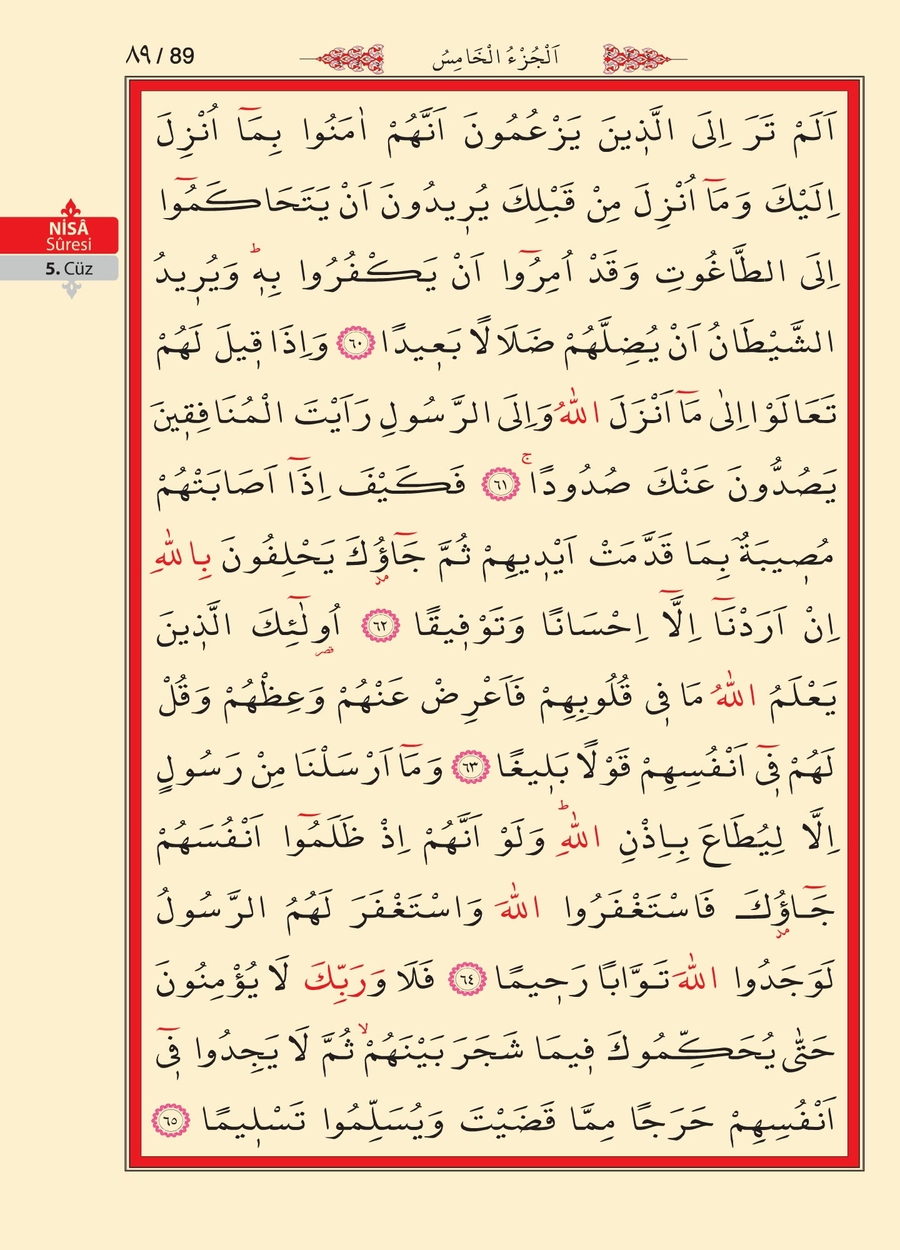 ٨٩ / 89
اَلْجُزْءُ الْخَامِسُ
NİSÂ
Sûresi
5. Cüz
اَلَمْ تَرَ اِلَى الَّذ۪ينَ يَزْعُمُونَ اَنَّهُمْ اٰمَنُوا بِمَٓا اُنْزِلَ
اِلَيْكَ وَمَٓا اُنْزِلَ مِنْ قَبْلِكَ يُر۪يدُونَ اَنْ يَتَحَاكَمُٓوا
اِلَى الطَّاغُوتِ وَقَدْ اُمِرُٓوا اَنْ يَكْفُرُوا بِه۪ۜ وَيُر۪يدُ
الشَّيْطَانُ اَنْ يُضِلَّهُمْ ضَلَالًا بَع۪يدًا ﴿٦٠﴾ وَاِذَا ق۪يلَ لَهُمْ
تَعَالَوْا اِلٰى مَٓا اَنْزَلَ اللّٰهُ وَاِلَى الرَّسُولِ رَاَيْتَ الْمُنَافِق۪ينَ
يَصُدُّونَ عَنْكَ صُدُودًاۚ ﴿٦١﴾ فَكَيْفَ اِذَٓا اَصَابَتْهُمْ
مُص۪يبَةٌ بِمَا قَدَّمَتْ اَيْد۪يهِمْ ثُمَّ جَٓاؤُ۫كَ يَحْلِفُونَ بِاللّٰهِ
اِنْ اَرَدْنَٓا اِلَّٓا اِحْسَانًا وَتَوْف۪يقًا ﴿٦٢﴾ اُو۬لٰٓئِكَ الَّذ۪ينَ
يَعْلَمُ اللّٰهُ مَا ف۪ي قُلُوبِهِمْ فَاَعْرِضْ عَنْهُمْ وَعِظْهُمْ وَقُلْ
لَهُمْ ف۪ٓي اَنْفُسِهِمْ قَوْلًا بَل۪يغًا ﴿٦٣﴾ وَمَٓا اَرْسَلْنَا مِنْ رَسُولٍ
اِلَّا لِيُطَاعَ بِاِذْنِ اللّٰهِۜ وَلَوْ اَنَّهُمْ اِذْ ظَلَمُٓوا اَنْفُسَهُمْ
جَٓاؤُ۫كَ فَاسْتَغْفَرُوا اللّٰهَ وَاسْتَغْفَرَ لَهُمُ الرَّسُولُ
لَوَجَدُوا اللّٰهَ تَوَّابًا رَح۪يمًا ﴿٦٤﴾ فَلَا وَرَبِّكَ لَا يُؤْمِنُونَ
حَتّٰى يُحَكِّمُوكَ ف۪يمَا شَجَرَ بَيْنَهُمْۙ ثُمَّ لَا يَجِدُوا ف۪ٓي
اَنْفُسِهِمْ حَرَجًا مِمَّا قَضَيْتَ وَيُسَلِّمُوا تَسْل۪يمًا ﴿٦٥﴾